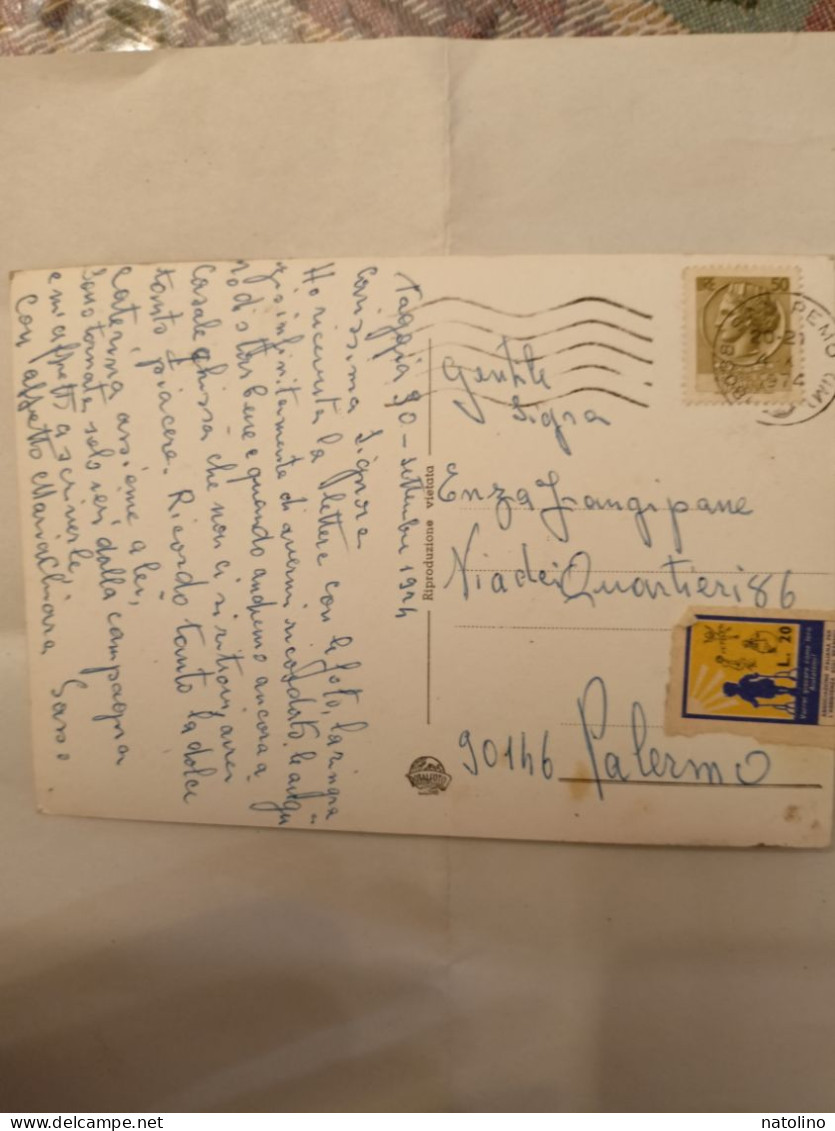 Taggia 90 - settembre 1974
carissima Signora
Ho ricevuta la lettera con le foto, la ringra
zio infinitamente di avermi ricordato. le augu
ro di star bene e quando andremo ancora a
Casale chissà che non ci si ritrovi, avrei
tanto piacere. Ricordo tanto la dolce
Caterina assieme a lei,
Sono tornata solo ieri dalla campagna
e mi affretto a scriverle,
con affetto Maria Chiara Sasso
Riproduzione vietata
LIRE 50
REMO (IM)
1974
Gentile
Sig.ra
Enza Frangipane
Via dei Quartieri 86
90146 Palermo
L. 20